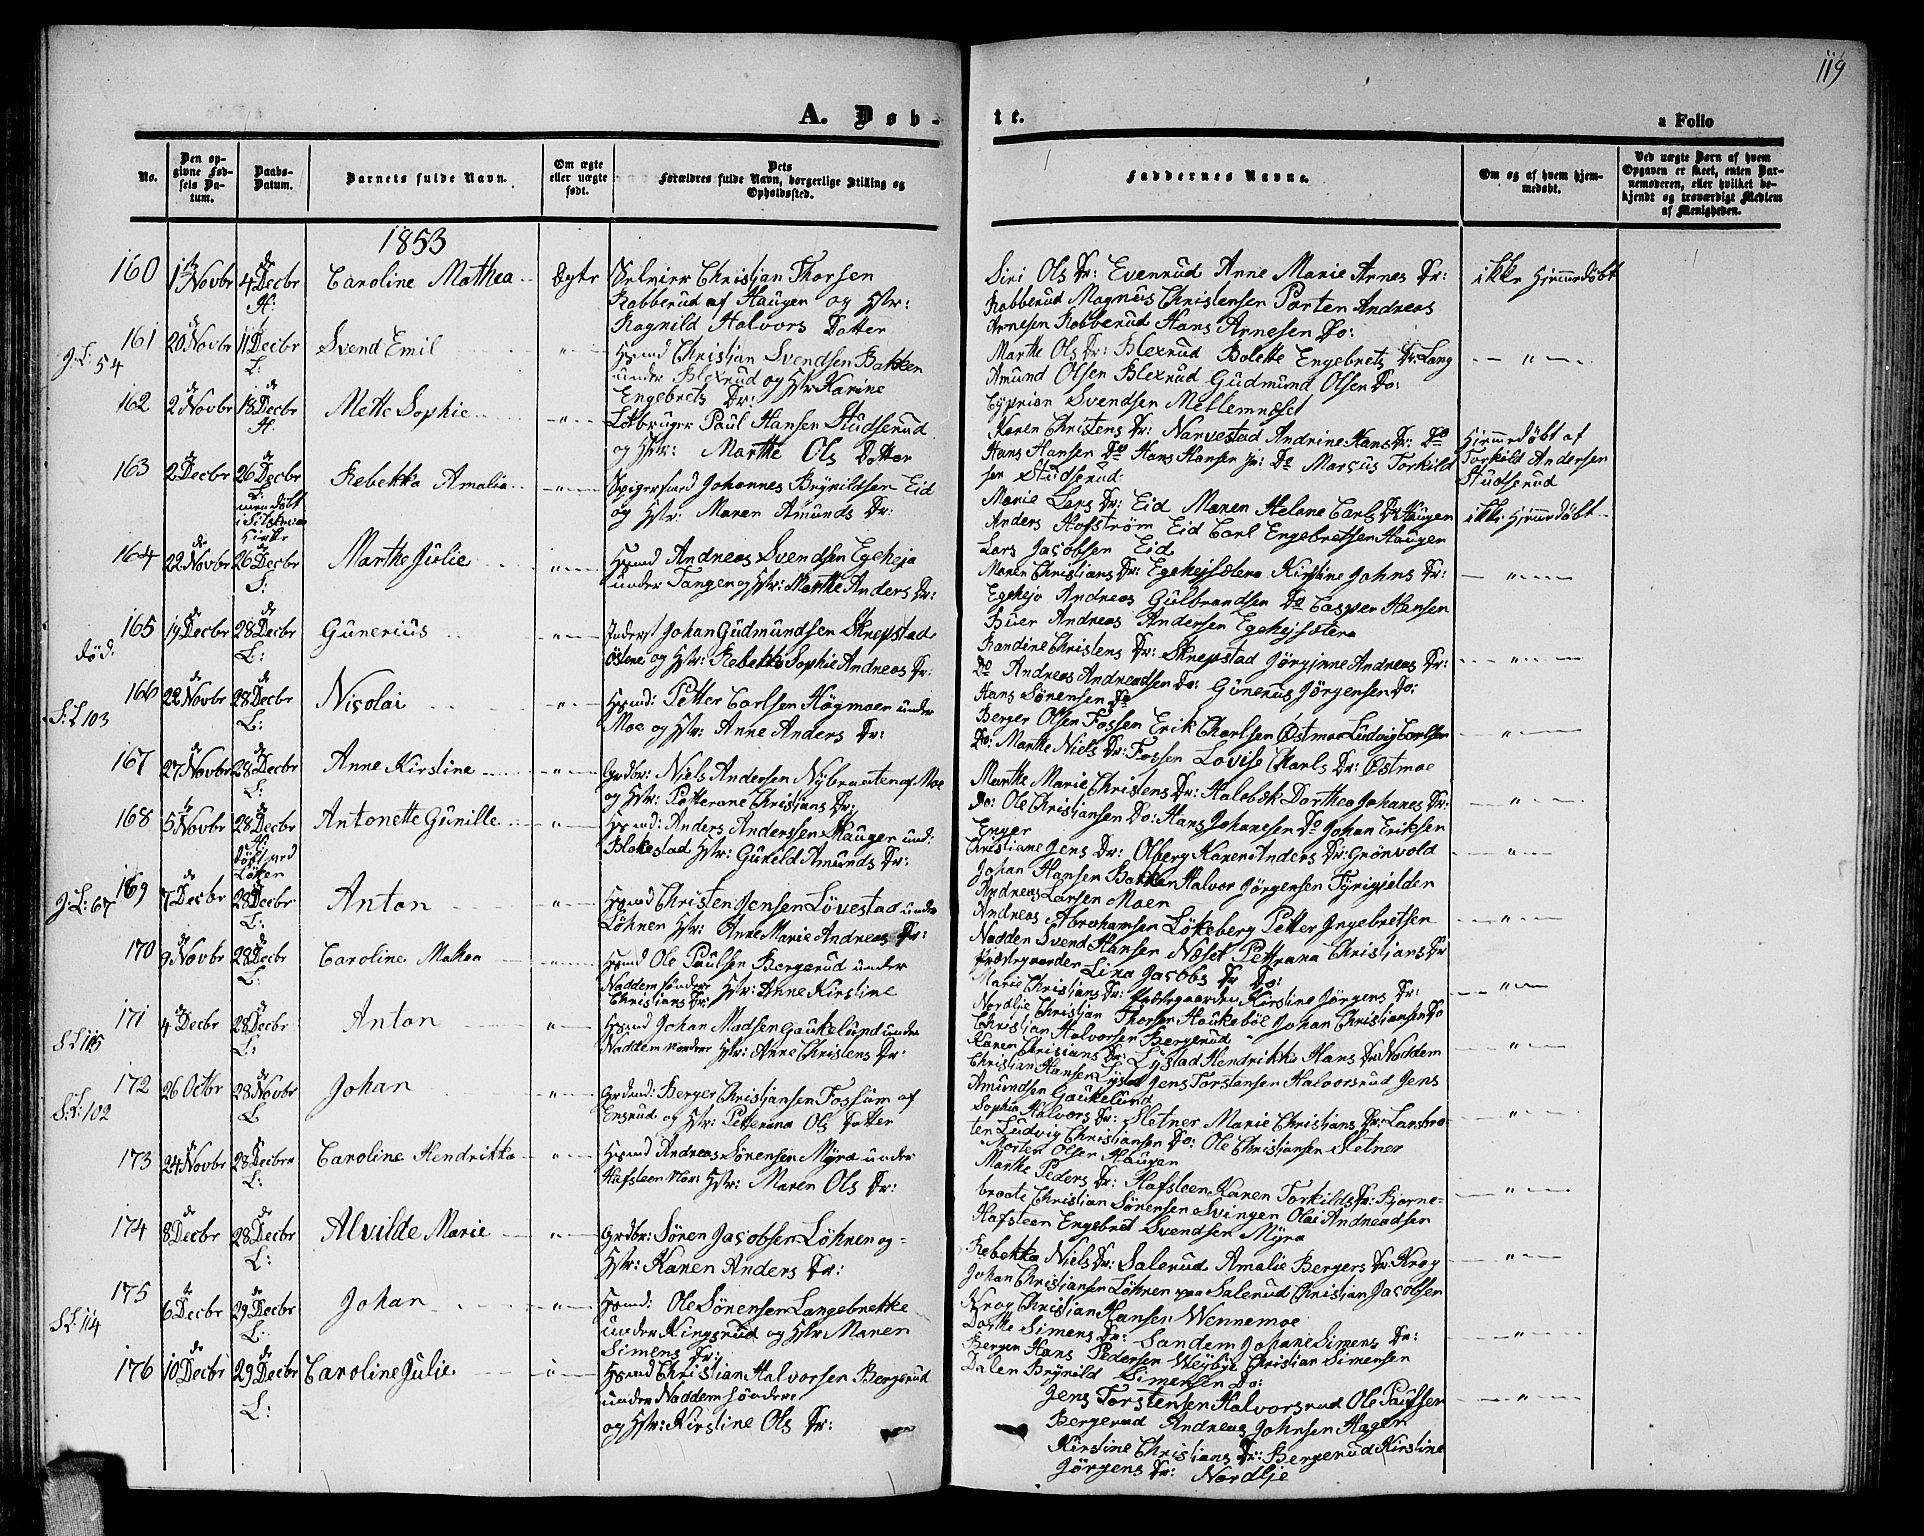 119
A. Døb-
te.
a Folio
No.
Den op-
givne Fød-
sels Da-
tum.
Daabs-
Datum.
Barnets fulde Navn.
Om ægte
eller uægte
født.
Dets
Forældres fulde Navn, borgerlige Stilling og
Opholdssted.
Faddernes Navne.
Om og af hvem hjem-
medøbt.
Ved uægte Børn af hvem
Opgaven er skeet, enten Bar-
nemoderen, eller hvilket be-
kjendt og troværdigt Medlem
af Menigheden.
1853
160 1 Novbr 4 Decbr Caroline Mathea Dgtr Selveier Christian Thorsen
H: Robberud af Hauger og Hstr:
Ragnild Halvors Datter
Siri Ols Dr: Evenrud Anne Marie Arnes Dr: ikke Hjemmedøbt
Robberud Magnus Christensen Parten Andreas
Arnesen Robberud Hans Arnesen Do:
161 20 Novbr 11 Decbr Svend Emil " Hsmd Christian Svendsen Bakken
J:L: 54 L: under Blexrud og Hstr Karine
Engebrets Dr:
Marthe Ols Dr: Blexrud Bolette Engebrets Dr: Lang "
Amund Olsen Blexrud Gudmund Olsen Do:
Cyprian Svendsen Mellemnæset
162 2 Novbr 18 Decbr Mette Sophie " Leilbruger Paul Hansen Studserud
H. og Hstr: Marthe Ols Datter
Karen Christens Dr: Narvestad Andrine Hans Dr: Do Hjemmedøbt af
Hans Hansen Do Hans Hansen jr: Do Marcus Torkild Torkild Andersen
sen Studserud. Studserud
163 2 Decbr 26 Decbr Rebekka Amalia " Spigersmed Johannes Brynildsen Eid
men døbt og Hstr: Maren Amunds Dr:
Kirke
Marie Lars Dr: Eid Maren Helene Carls Dr Haugen ikke Hjemmedøbt
Anders Hofstrøm Eid Carl Engebretsen Haugen
Lars Jacobsen Eid
164 22 Novbr 26 Decbr Marthe Julie " Hsmd Andreas Svendsen Egeheja
S: under Tangen og Hstr: Marthe Anders Dr:
Maren Christians Dr: Egehejsætera Kirstine Johns Dr: "
Egeheja Andreas Gulbrandsen Do Casper Hansen
Buer Andreas Andersen Egehejsætera
165 19 Decbr 28 Decbr Gunerius " Inderst Johan Gudmundsen Skrepstad
død. L: østene og Hstr: Rebekka Sophie Andreas Dr:
Randine Christens Dr: Skrepstad Jørginne Andreas Dr: "
Do Andreas Andreasen Do: Gunerus Jørgensen Do:
Hans Sørensen Do
166 22 Novbr 28 Decbr Nicolai " Hsmd: Petter Carlsen Høgmoen under
S:L 103 L: Moe og Hstr: Anne Anders Dr:
Berger Olsen Fossen Erik Charlsen Østmoe Ludvig Carlsen "
Do: Marthe Niels Dr: Fossen Lovise Charls Dr: Østmoe
167 27 Novbr 28 Decbr Anne Kirstine " Grdbr: Niels Andersen Nybraaten af Moe
og Hstr: Petterane Christians Dr:
Marthe Marie Christens Dr: Halebæk Dorthea Johanes Dr: "
Do: Ole Christiansen Do: Hans Johanesen Do Johan Eriksen
Enger
168 5 Novbr 28 Decbr Antonette Gunille " Hsmd: Anders Anderssen Hauger und:
H: Blakestad Hstr: Gunild Amunds Dr:
døbt ved
Løken
Christiane Jens Dr: Olberg Karen Anders Dr: Grønvold "
Johan Hansen Bakken Halvor Jørgensen Tyrigjelden
Andreas Larsen Moen
169 7 Decbr 28 Decbr Anton " Hsmd Christen Jensen Løvestad under
J:L: 67 L: Løhnen Hstr: Anne Marie Andreas Dr:
Andreas Abrahamsen Løkeberg Petter Ingebretsen "
Nadden Svend Hansen Næset Petrana Christians Dr
Præstegaarden Lina Jacobs Dr Do:
170 9 Novbr 28 Decbr Caroline Mathea " Hsmd Ole Paulsen Bergerud under
L: Naddem søndere Hstr: Anne Kirstine
Christians Dr:
Marie Christians Dr: Præstegaarden Kirstine Jørgens Dr: "
Nordlie Christian Thorsen Haukebøl Johan Christiansen Do
Christian Halvorsen Bergerud
171 4 Decbr 28 Decbr Anton " Hsmd Johan Madsen Gaukelund under
S L 115 L: Naddem nordere Hstr: Anne Christens Dr:
Karen Christians Dr: Lystad Hendrikke Hans Dr Naddem "
Christian Hansen Lystad Jens Torstensen Halvorsrud Jens
Amundsen Gaukelund
172 26 Octbr 28 Novbr Johan " Grdmd: Berger Christiansen Fossum af
S:L: 102 L Ensrud og Hstr: Petterina Ols Datter
Sophie Halvors Dr: Sletner Marie Christians Dr: Lansbra- "
ten Ludvig Christiansen Do: Ole Christiansen Sletner
Morten Olsen Haugen
173 24 Novbr 28 Decbr Caroline Hendrikka " Hsmd Andreas Sørensen Myra under
L: Hafsteen Nor: Hstr: Maren Ols Dr:
Marthe Peders Dr: Hafsteen Karen Torkilds Dr: Bjørne- "
braate Christian Sørensen Svingen Olai Andreasen
Hafsteen Engebret Svendsen Myra
174 8 Decbr 28 Decbr Alvilde Marie " Grdbr: Søren Jacobsen Løhnen og-
L: Hstr: Karen Anders Dr:
Rebekka Niels Dr: Salerud Amalie Bergers Dr: Krog "
Johan Christiansen Løhnen paa Salerud Christian Jacobsen
Krog Christian Hansen Wennemoe
175 6 Decbr 29 Decbr Johan " Hsmd: Ole Sørensen Langebrekke
S L: 114 L: under Kingsrud og Hstr: Maren
Simens Dr:
Dorthe Simens Dr: Sandem Johane Simens Dr: "
Bergen Hans Pedersen Weybye Christian Simensen
Dalen Brynild Simensen Do:
176 10 Decbr 29 Decbr Caroline Julie " Hsmd Christian Halvorsen Bergerud
L: under Naddem søndere
og Hstr: Kirstine Ols Dr:
Jens Torstensen Halvorsrud Ole Paulsen "
Bergerud Andreas Johnsen Hagen
Kirstine Christians Dr: Bergerud Kirstine
Jørgens Dr: Nordlje